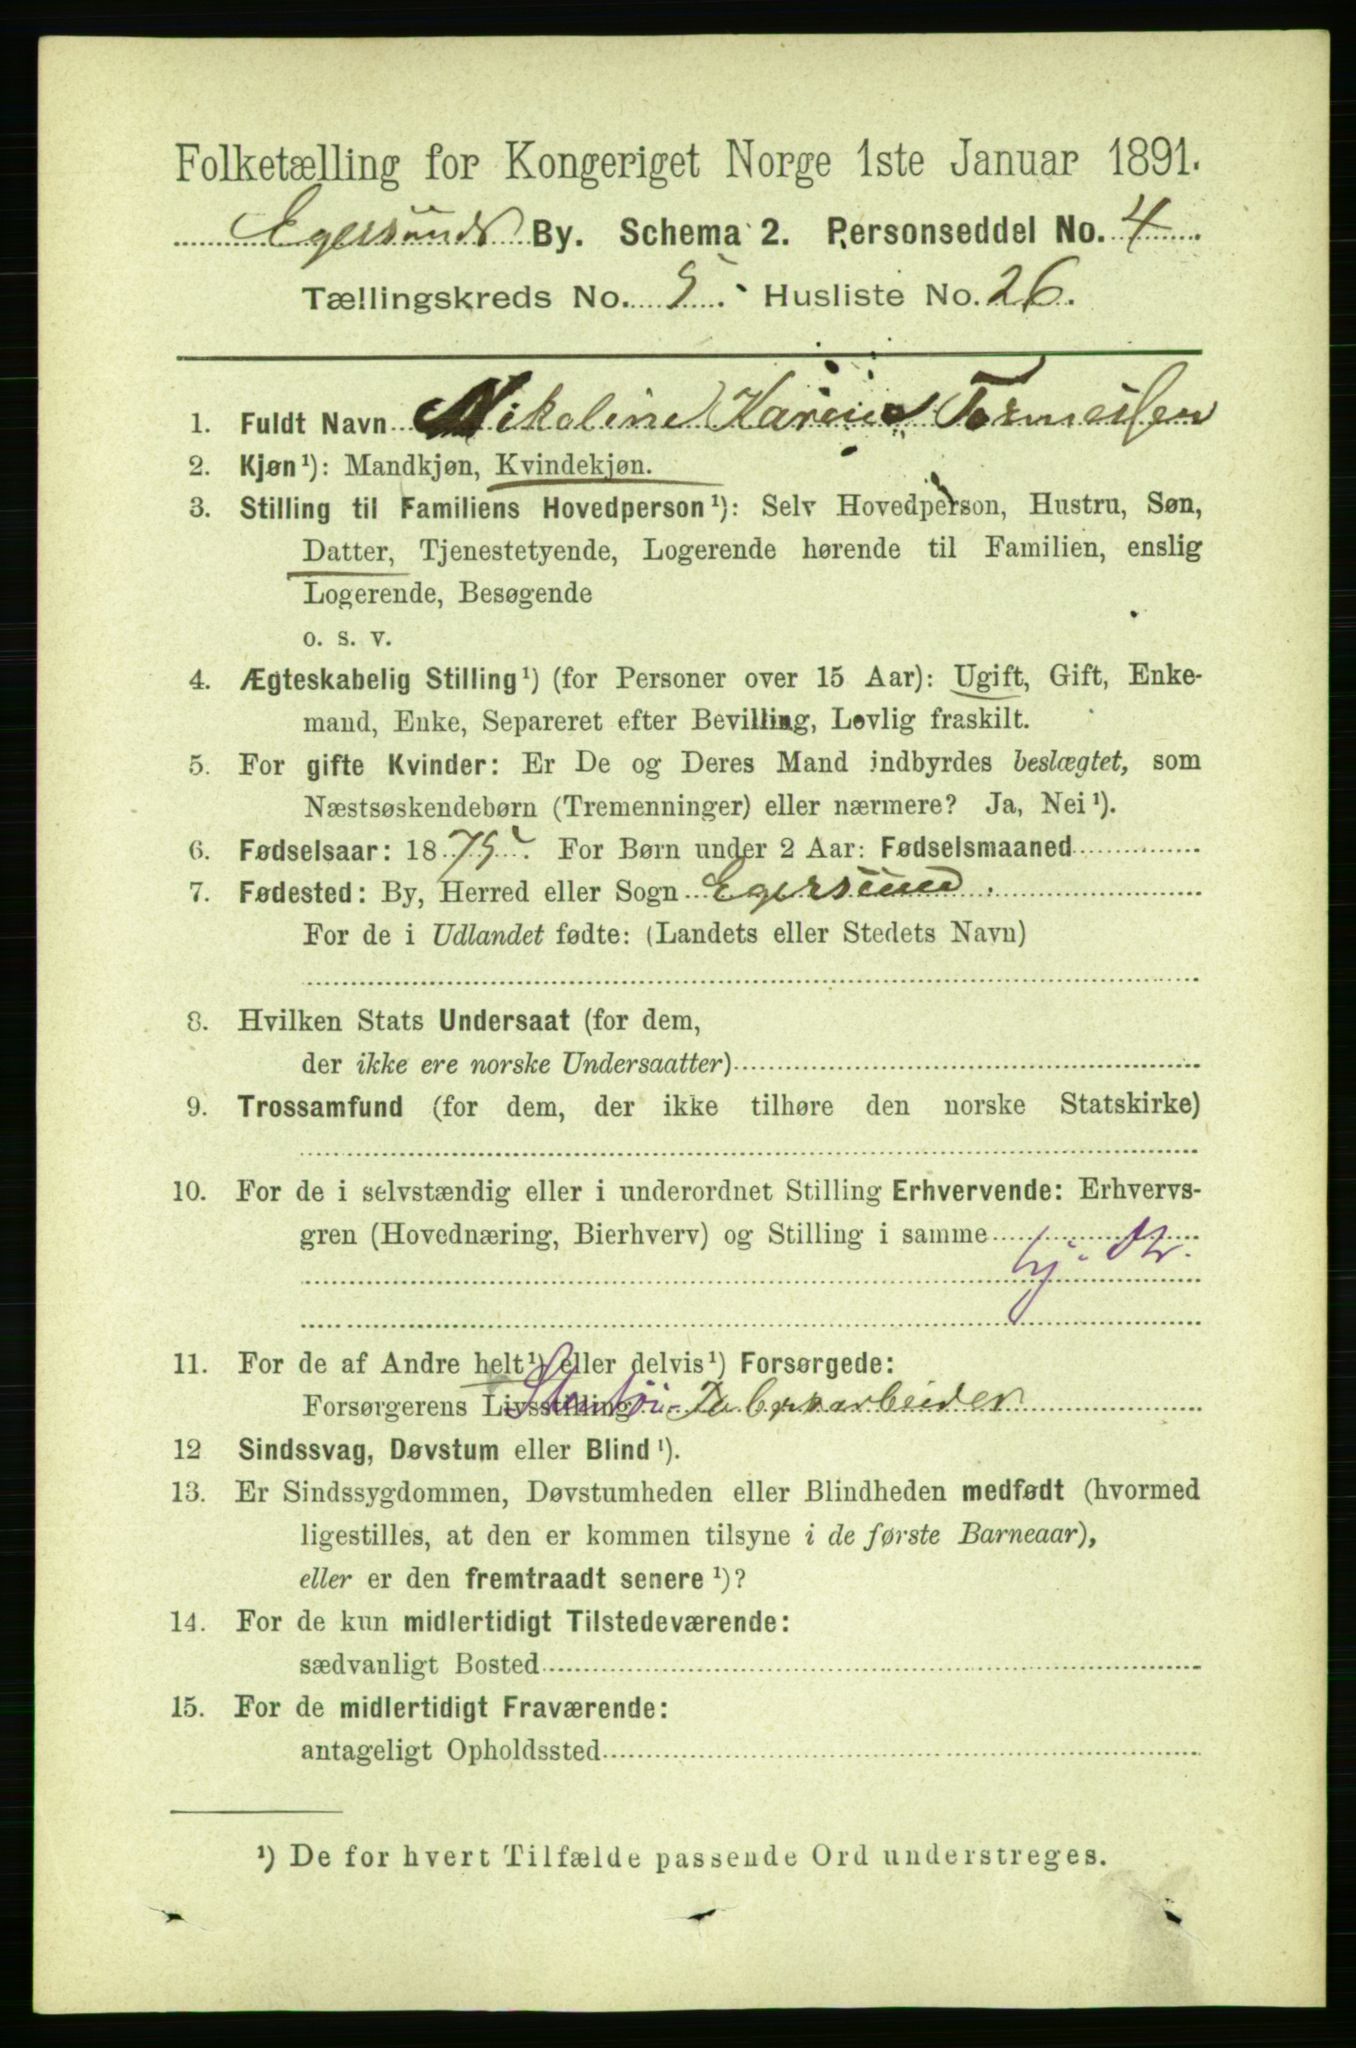 Folketælling for Kongeriget Norge 1ste Januar 1891.
Egersunds By. Schema 2. Personseddel No. 4
Tællingskreds No. 5. Husliste No. 26.
1. Fuldt Navn Nikoline Karine
2. Kjøn¹): Mandkjøn, Kvindekjøn.
3. Stilling til Familiens Hovedperson¹): Selv Hovedperson, Hustru, Søn,
Datter, Tjenestetyende, Logerende hørende til Familien, enslig
Logerende, Besøgende
o. s. v.
4. Ægteskabelig Stilling¹) (for Personer over 15 Aar): Ugift, Gift, Enke-
mand, Enke, Separeret efter Bevilling, Lovlig fraskilt.
5. For gifte Kvinder: Er De og Deres Mand indbyrdes beslægtet, som
Næstsøskendebørn (Tremenninger) eller nærmere? Ja, Nei¹).
6. Fødselsaar: 1875. For Børn under 2 Aar: Fødselsmaaned
7. Fødested: By, Herred eller Sogn Egersund.
For de i Udlandet fødte: (Landets eller Stedets Navn)
8. Hvilken Stats Undersaat (for dem,
der ikke ere norske Undersaatter)
9. Trossamfund (for dem, der ikke tilhøre den norske Statskirke)
10. For de i selvstændig eller i underordnet Stilling Erhvervende: Erhvervs-
gren (Hovednæring, Bierhverv) og Stilling i samme
11. For de af Andre helt¹) eller delvis¹) Forsørgede:
Forsørgerens Livsstilling
12 Sindssvag, Døvstum eller Blind¹).
13. Er Sindssygdommen, Døvstumheden eller Blindheden medfødt (hvormed
ligestilles, at den er kommen tilsyne i de første Barneaar),
eller er den fremtraadt senere¹)?
14. For de kun midlertidigt Tilstedeværende:
sædvanligt Bosted
15. For de midlertidigt Fraværende:
antageligt Opholdssted
¹) De for hvert Tilfælde passende Ord understreges.